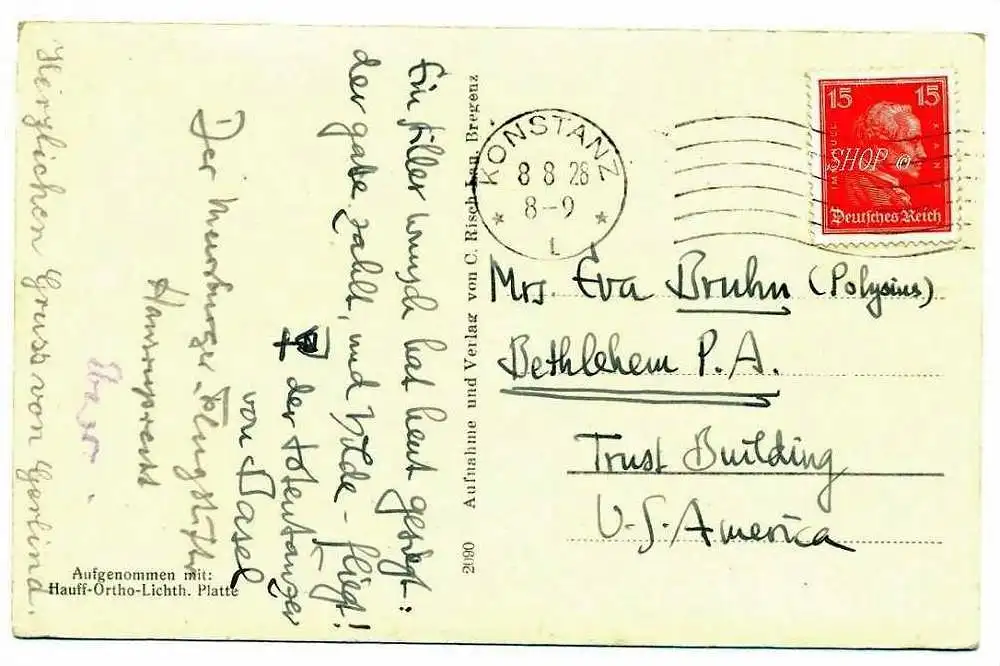 Ein stiller Wunsch hat heut gesiegt:
der gate zahlt, und Hilde - fliegt!
der Totentänzer
von Basel
Der Meersburger Flugstifter
Herzlichen Gruss von Gerlind.
Aufgenommen mit:
Hauff-Ortho-Lichth. Platte
2090 Aufnahme und Verlag von C. Risch-Lau, Bregenz
KONSTANZ
8 8 28
8-9
* 1 *
15 15
IMMANUEL KANT
SHOP ©
Deutsches Reich
Mrs. Eva Bruhn (Polysius)
Bethlehem P.A.
Trust Building
U.S. America